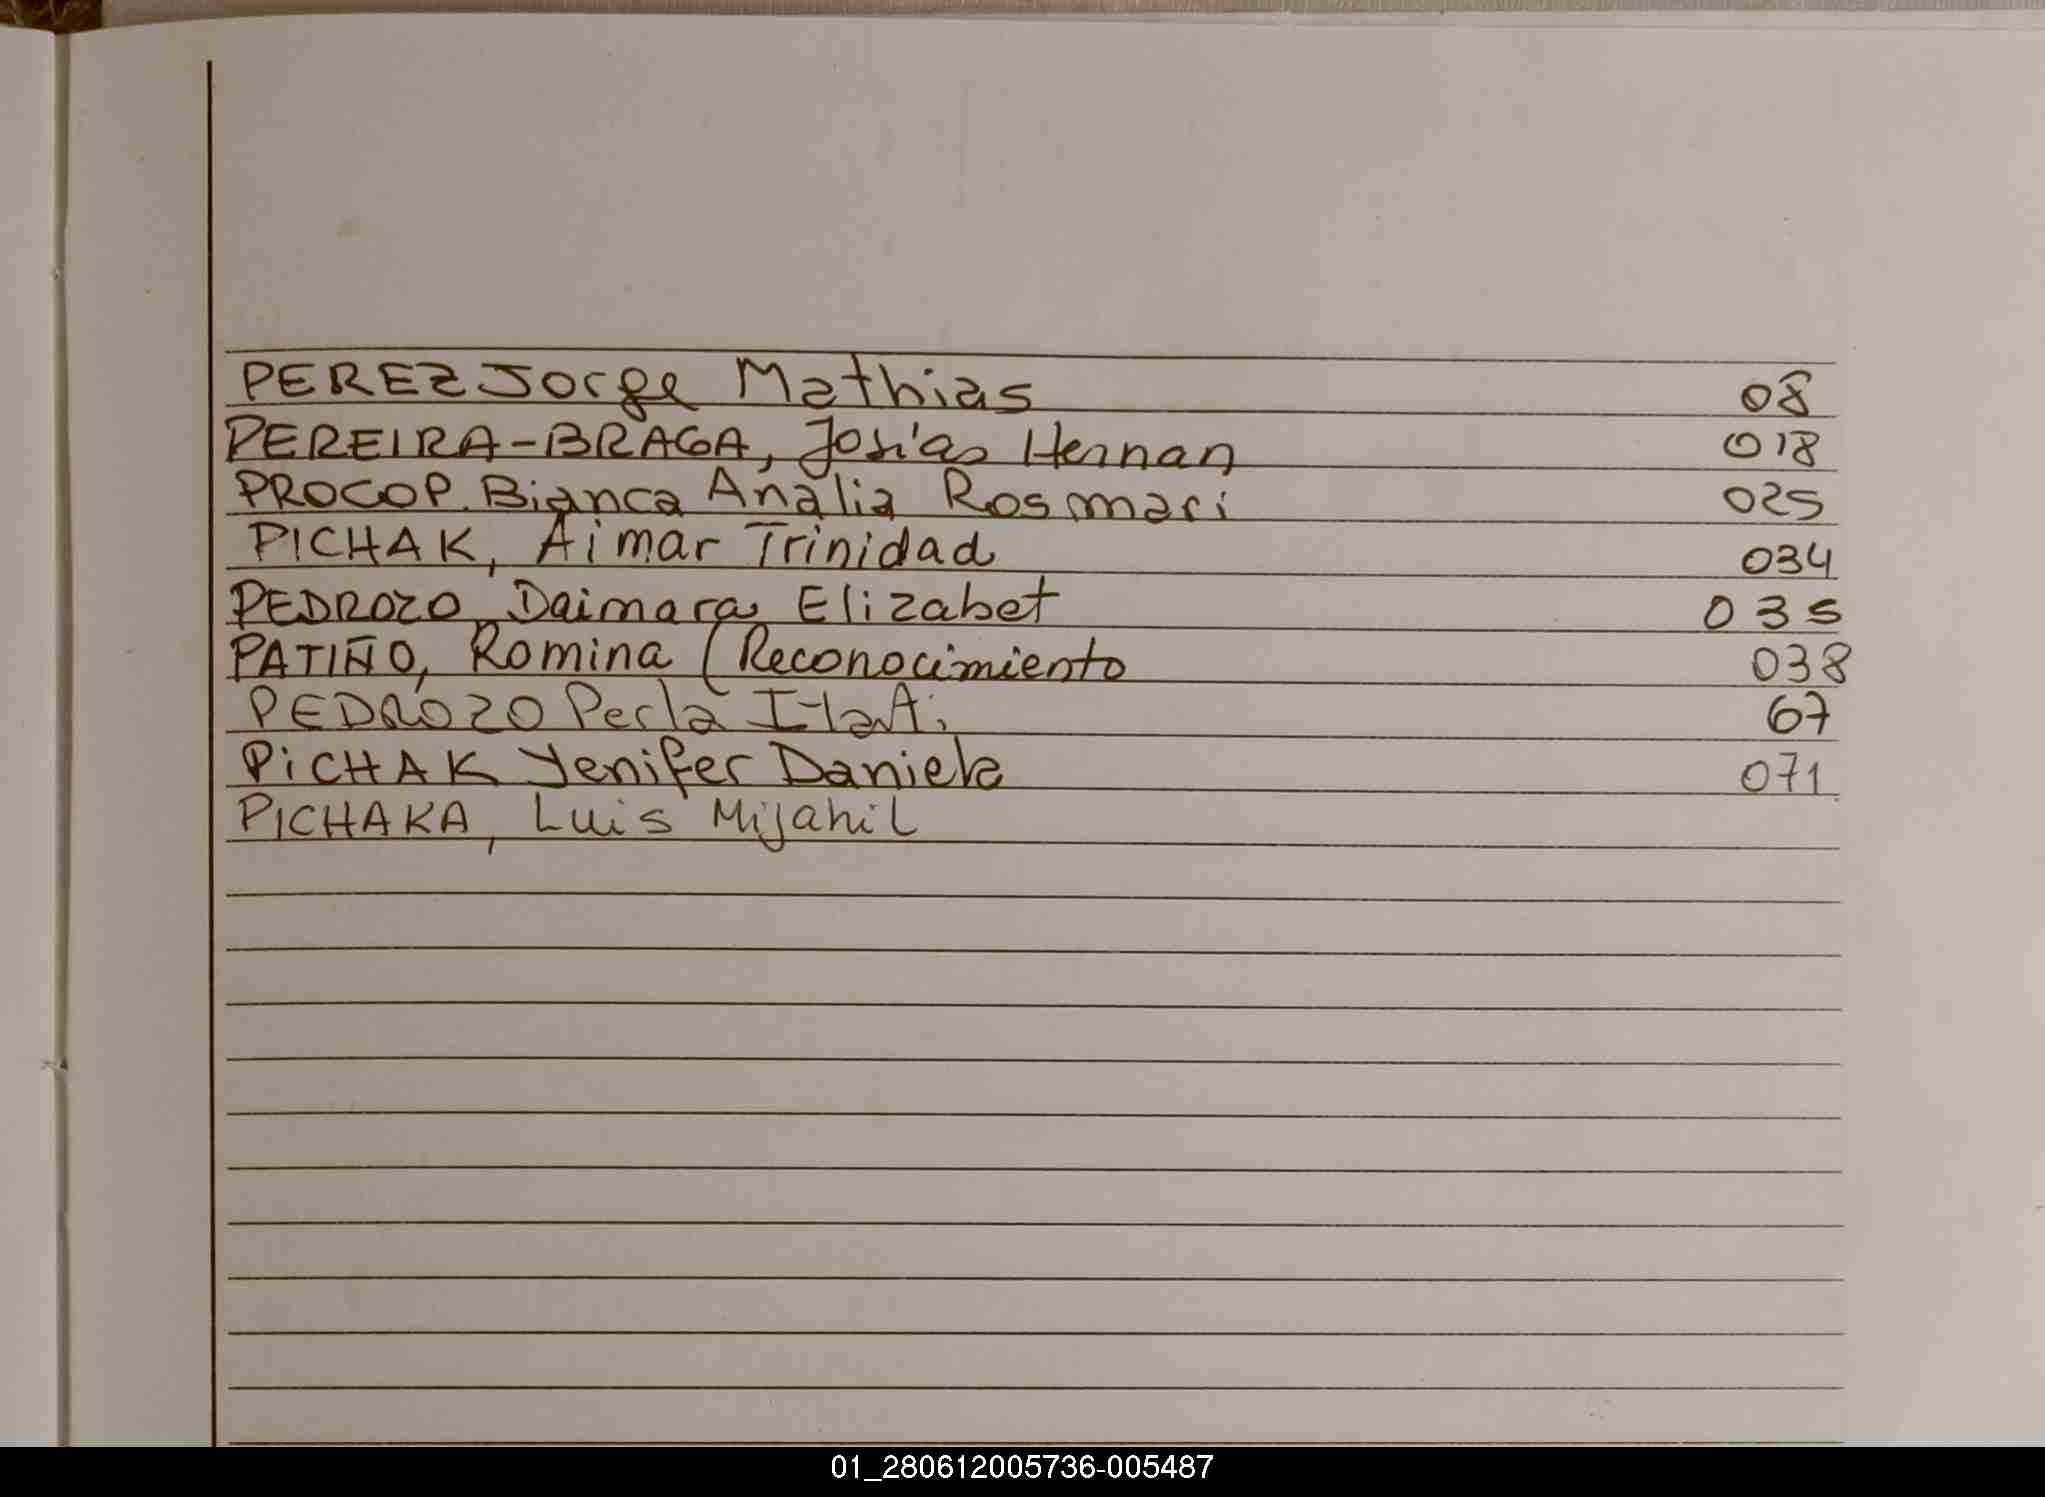 PEREZ Jorge Mathias 08
PEREIRA-BRAGA, Josías Hernan 018
PROCOP. Bianca Analia Rosmari 025
PICHAK, Aimar Trinidad 034
PEDROZO, Daimara Elizabet 035
PATIÑO, Romina (Reconocimiento 038
PEDROZO Perla 67
PiCHAK Yenifer Daniela 071
PICHAKA, Luis Mijahil
01_280612005736-005487